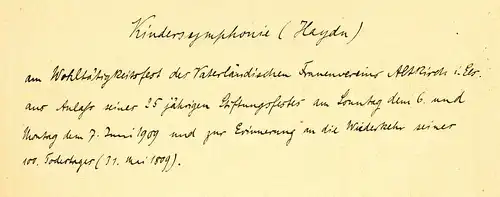 Kindersymphonie (Haydn)
am Wohltätigkeitsfest des Vaterländischen Frauenvereins Altkirch i. Els.
aus Anlaß seiner 25 jährigen Stiftungsfestes am Sonntag dem 6. und
Montag dem 7. Juni 1909 und zur Erinnerung an die Wiederkehr seiner
100. Todestages (31. Mai 1809).